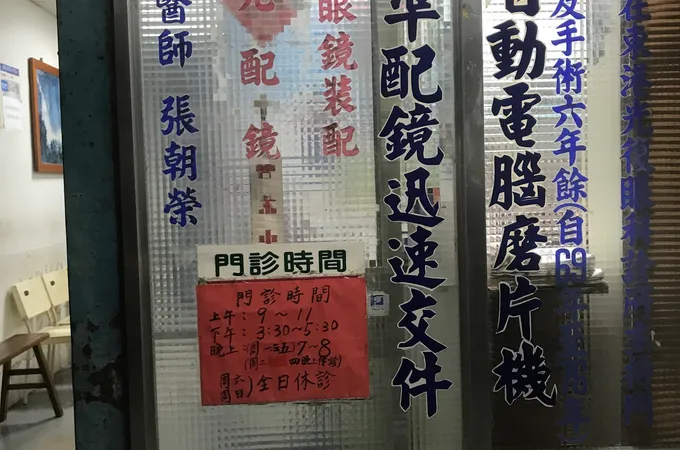 在東港光復眼科診所
反手術六年餘(自69年
自動電腦磨片機
準配鏡迅速交件
眼鏡裝配
光配鏡
醫師 張朝榮
門診時間
門診時間
上午:9～11
下午:3:30～5:30
晚上:(周一三五)7～8
(周二 四晚上休診)
周六
周日)全日休診